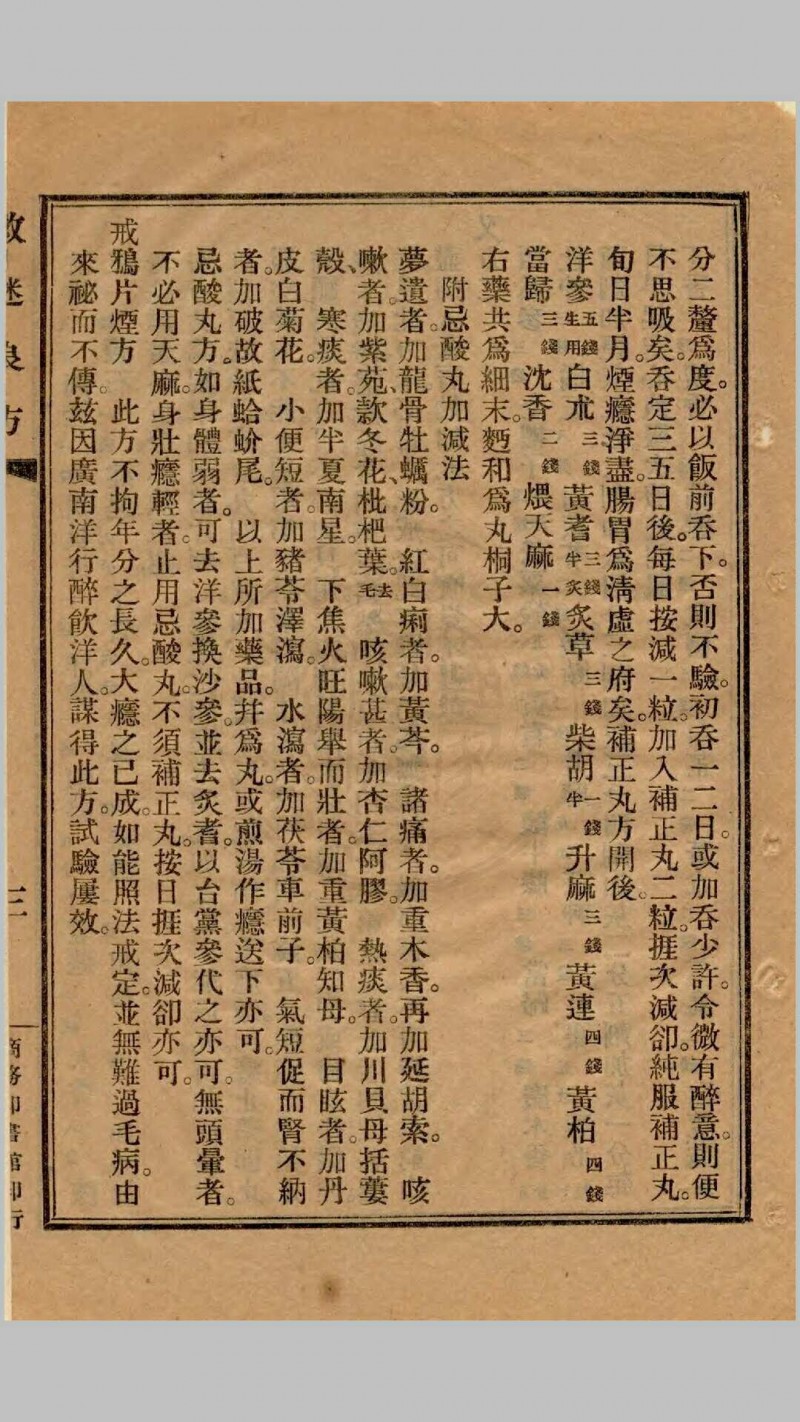 分二釐爲度。必以飯前吞下。否則不驗。初吞一二日。或加吞少許。令微有醉意。則便
不思吸矣。吞定三五日後。每日按減一粒。加入補正丸二粒。捱次減卻。純服補正丸。
旬日半月。煙癮淨盡。腸胃爲淸虛之府矣。補正丸方開後。
洋參五錢生用白朮三錢黃耆三錢半炙炙草三錢柴胡一錢半升麻三錢黃連四錢黃柏四錢
當歸三錢沈香二錢煨天麻一錢
右藥共爲細末。麪和爲丸桐子大。
附忌酸丸加減法
夢遺者。加龍骨牡蠣粉。 紅白痢者。加黃芩。 諸痛者。加重木香。再加延胡索。 咳
嗽者。加紫苑、款冬花、枇杷葉。去毛 咳嗽甚者。加杏仁阿膠。 熱痰者。加川貝母括蔞
殼、 寒痰者。加半夏南星。 下焦火旺陽舉而壯者。加重黃柏知母。 目眩者。加丹
皮白菊花。 小便短者。加豬苓澤瀉。 水瀉者。加茯苓車前子。 氣短促而腎不納
者。加破故紙蛤蚧尾。 以上所加藥品。幷爲丸。或煎湯作癮送下亦可。
忌酸丸方。如身體弱者。可去洋參換沙參。並去炙耆。以台黨參代之亦可。無頭暈者。
不必用天麻。身壯癮輕者。止用忌酸丸。不須補正丸。按日捱次減卻亦可。
戒鴉片煙方 此方不拘年分之長久。大癮之已成。如能照法戒定。並無難過毛病。由
來祕而不傳。茲因廣南洋行醉飲洋人。謀得此方。試驗屢效。
良方
三
商務印書館印行